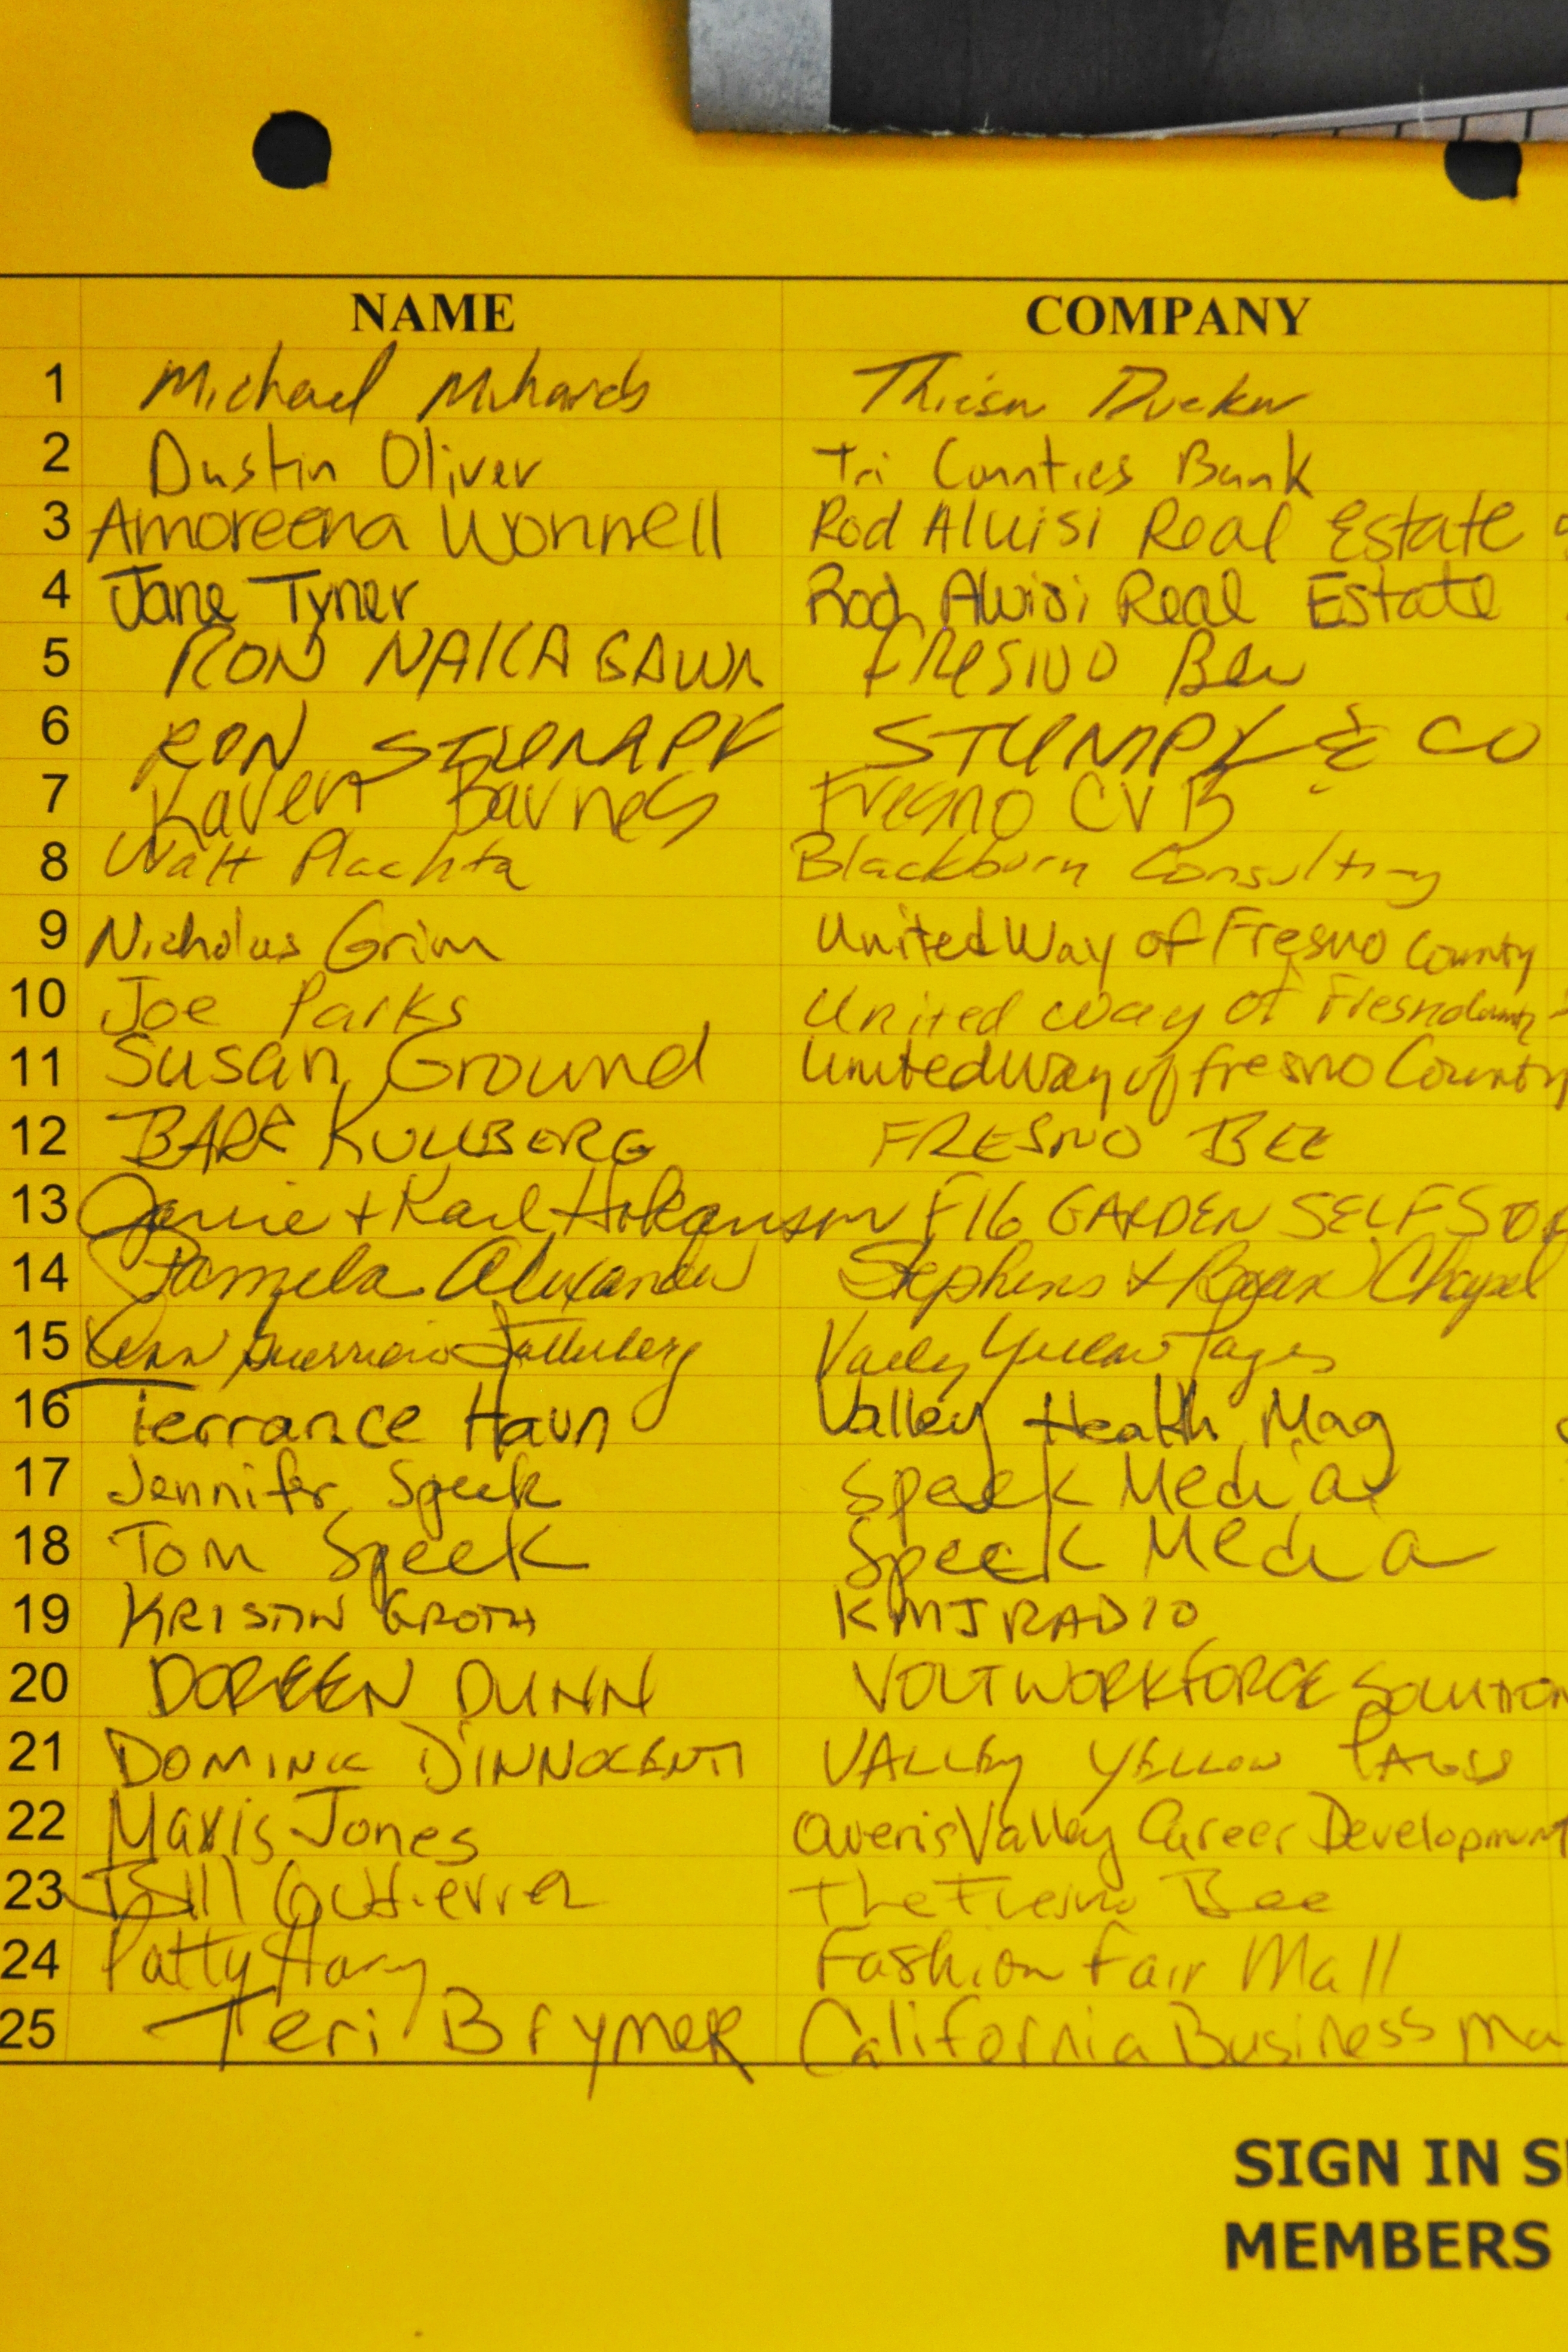 NAME COMPANY
1 Michael
2 Dustin Oliver Tri Counties Bank
3 Amoreena Wonnell Rod Aluisi Real Estate
4 Jane Tyner Rod Aluisi Real Estate
5 RON NAKAGAWA FRESNO Bee
6 RON STUMPF STUMPF & CO
7 Karen Barnes Fresno CVB
8 Walt Plachta Blackburn Consulting
9 Nicholas Grim United Way of Fresno County
10 Joe Parks United Way of Fresno County
11 Susan Ground United Way of Fresno County
12 BARR KULLBERG FRESNO BEE
13 Janie + Karl Hokanson FIG GARDEN SELF STOR
14 Pamela Alexander Stephens & Bean Chapel
15 Guerrero Valley Yellow Pages
16 Terrance Haun Valley Health Mag
17 Jennifer Speek Speek Media
18 Tom Speek Speek Media
19 KRISTIN GROTH KMJ RADIO
20 DOREEN DUNN VOLT WORKFORCE SOLUTION
21 DOMINIC D'INNOCENTI VALLEY YELLOW PAGES
22 Maris Jones Valley Career Development
23 Bill Gutierrez The Fresno Bee
24 Patty Fashion Fair Mall
25 Teri BrymeR California Business Ma
SIGN IN S
MEMBERS